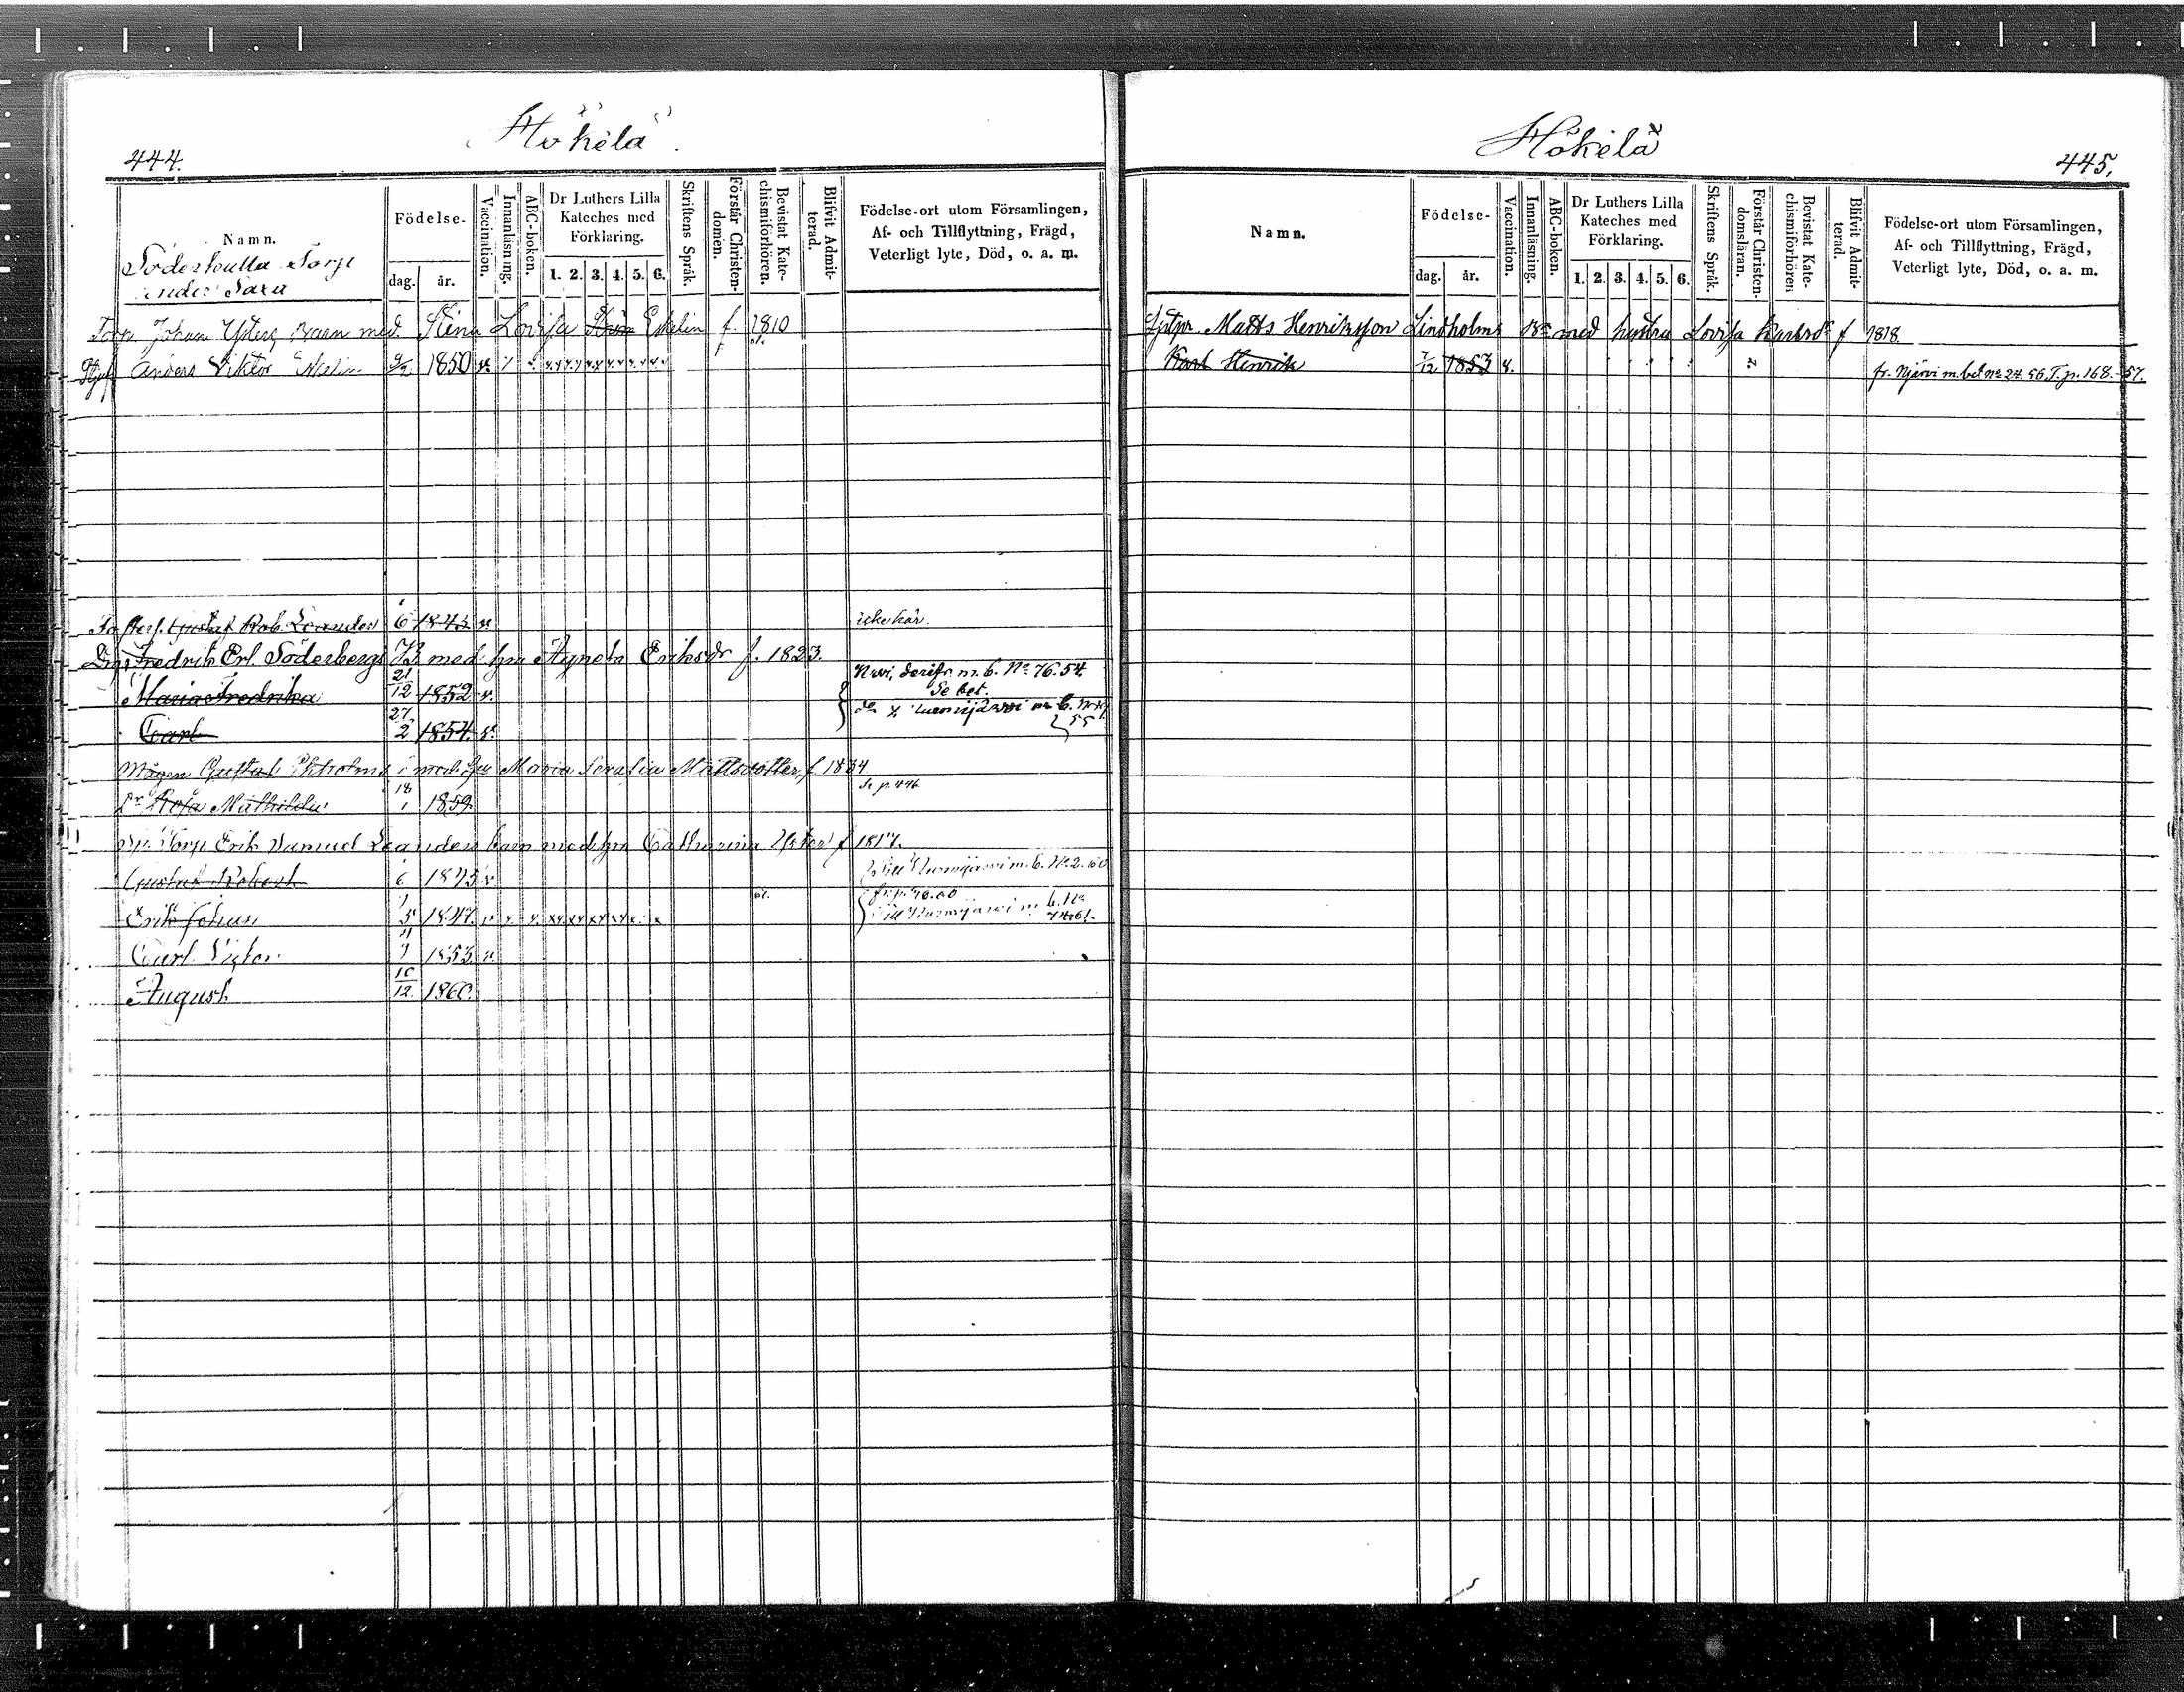 444.
Hökelä.
Namn.
Söderkulla Torp
under Saxa
Födelse-
dag. år.
Vaccination.
Innanläsning.
ABC-boken.
Dr Luthers Lilla Kateches med Förklaring.
1. 2. 3. 4. 5. 6.
Skriftens Språk.
Förstår Christendomen.
Bevistat Katechismiförhören.
Blifvit Admitterad.
Födelse-ort utom Församlingen, Af- och Tillflyttning, Frägd, Veterligt lyte, Död, o. a. m.
Torp. Johan Ysters Barn med Stina Lovisa Eskelin f. 1810
Anders Viktor 1850 v.
Gustaf Rob. Leander 6 1843 v. icke här.
Fredrik Erl. Söderbergs B. med hu Agneta Eriksdr f. 1823.
Maria Fredrika 21/12 1852 v. m. b. No 76. 54. Se bet.
Carl 27/2 1854. v. Nurmijärvi m b. 55
Mågen Gustaf Ekholms med Maria Serafia Mattsdotter f. 1834
Rosa Mathilda 18/1 1859. Se p. 446
Torp. Erik Samuel Leanders barn med hu Catharina Yster f 1817.
Gustaf Robert 6 1843 v. Till Nurmijärvi m. b. No 2. 60
Erik Johan 5 1847. v x. x. Till Nurmijärvi m. b. No 74. 61.
Carl Victor 11/9 1853 v.
August 10/12. 1860.
Hökelä
445.
Namn.
Födelse-
dag. år.
Vaccination.
Innanläsning.
ABC-boken.
Dr Luthers Lilla Kateches med Förklaring.
1. 2. 3. 4. 5. 6.
Skriftens Språk.
Förstår Christendomsläran.
Bevistat Katechismiförhören
Blifvit Admitterad.
Födelse-ort utom Församlingen, Af- och Tillflyttning, Frägd, Veterligt lyte, Död, o. a. m.
Matts Henriksson Lindholms Bn med hustru Lovisa f 1818
Karl Henrik 7/12 1853 v. fr. Njärvi m. bet No 24. 56 T. p. 168. -57.